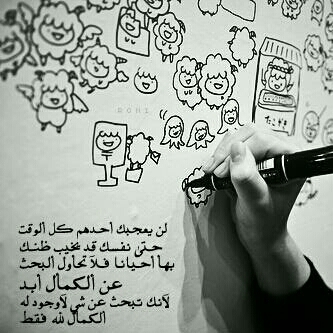 RONI
たこやき
لن يعجبك أحدهم كل ألوقت
حتى نفسك قد يخيب ظنك
بها أحيانا فلا تحاول ألبحث
عن ألكمال أبد
لآنك تبحث عن شي لاوجود له
ألكمال لله فقط